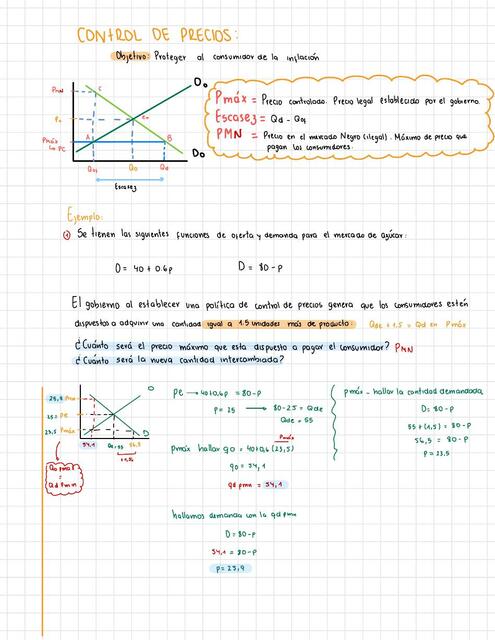 CONTROL DE PRECIOS:
Objetivo: Proteger al consumidor de la inflación
PMN
C
O₀
P₀
e₀
Pmáx
A
B
D₀
Q₀
Qd
Escasez
Pmáx = Precio controlado. Precio legal establecido por el gobierno.
Escasez = Qd - Qof
PMN = Precio en el mercado Negro (ilegal). Máximo de precio que
pagan los consumidores.
Ejemplo:
① Se tienen las siguientes funciones de oferta y demanda para el mercado de azúcar:
O = 40 + 0.6p
D = 80 - p
El gobierno al establecer una política de control de precios genera que los consumidores estén
dispuestos a adquirir una cantidad igual a 1.5 unidades más de producto. Qde + 1.5 = Qd en Pmáx
¿Cuánto será el precio máximo que esta dispuesto a pagar el consumidor? PMN
¿Cuánto será la nueva cantidad intercambiada?
O
Pmn
25 = Pe
23,5 Pmáx
D
54,1
Qe=55
56,5
+1,5
Qo pmax
=
Qd Pmn
Pe → 40+0,6p = 80-p
p = 25 → 80-25 = Qde
Qde = 55
Pmáx
pmáx hallar qo = 40+0,6 (23,5)
qo = 54,1
qd pmn = 54,1
hallamos demanda con la qd pmn
D = 80-p
54,1 = 80-p
p = 25,9
pmáx - hallar la cantidad demandada
D = 80-p
55 + (1,5) = 80-p
56,5 = 80-p
p = 23,5